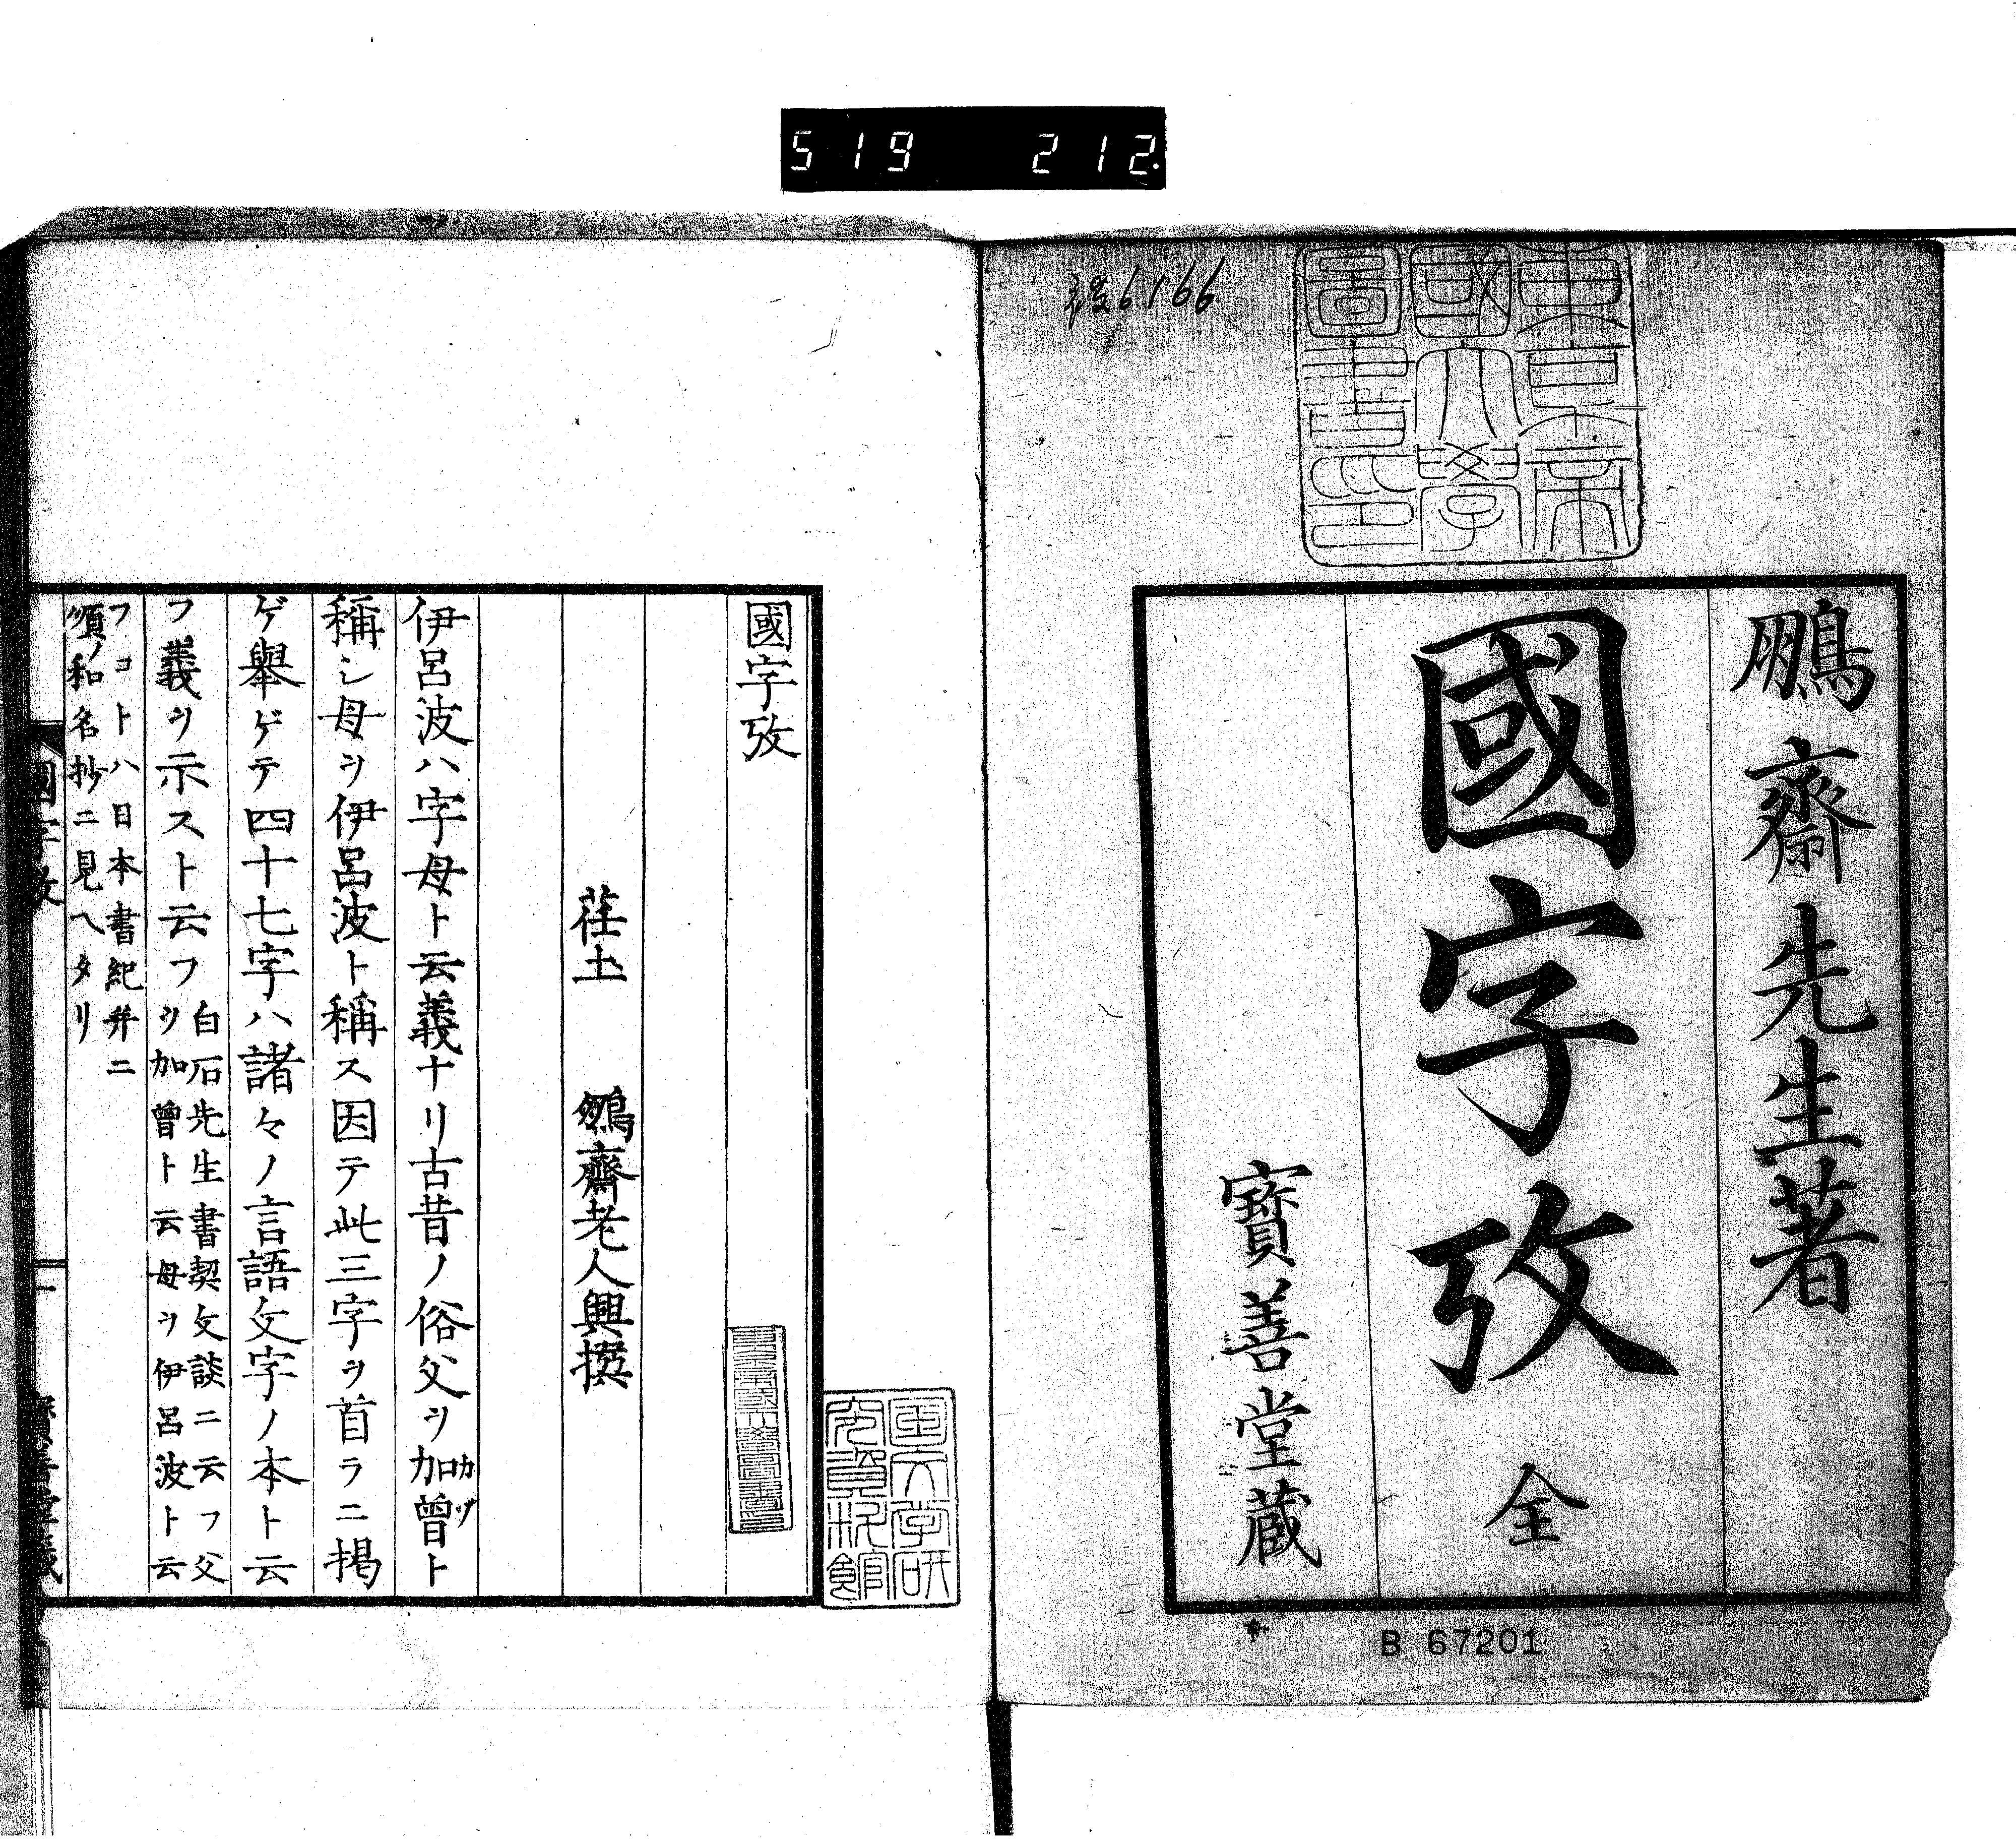 519 212
6166
東京帝
國大學
圖書印
鵬齋先生著
國字攷 全
寶善堂蔵
B 67201
國字攷
荏土 鵬齋老人興撰
伊呂波ハ字母ト云義ナリ古昔ノ俗父ヲ加曾ト
カゾ
稱シ母ヲ伊呂波ト稱ス因テ此三字ヲ首ラニ掲
ゲ舉ゲテ四十七字ハ諸々ノ言語文字ノ本ト云
フ義ヲ示スト云フ
白石先生書契文談ニ云フ父
ヲ加曾ト云母ヲ伊呂波ト云
フコトハ日本書紀并ニ
順ノ和名抄ニ見ヘタリ
國文学研
究資料館
國字攷
一